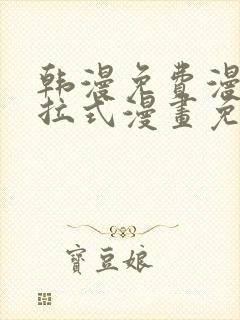 韩漫免费漫
拉式漫畫免
寶豆娘